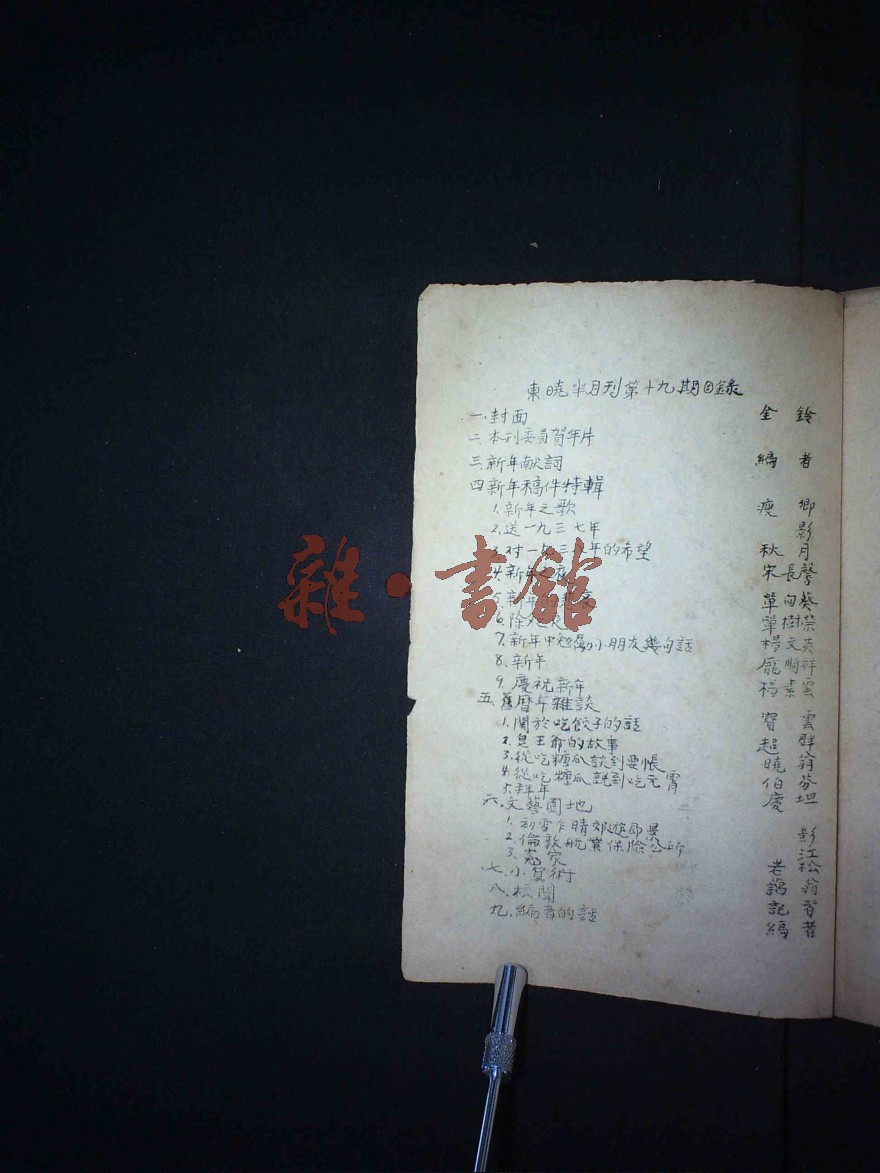 東曉半月刊第十九期目錄
一.封面 金鈴
二.本刊委員賀年片
三.新年献詞 編者
四.新年稿件特輯
1.新年之歌 瘦卿
2.送一九三七年 影
3.对一九三八年的希望 秋月
4.新年 宋長馨
5.新年 單向葵
6.除夕 單樹榮
7.新年中勉勵小朋友幾句話 楊文英
8.新年 龐順祥
9.慶祝新年 楊素雲
五.舊曆年雜談
1.関於吃餃子的話 寳雲
2.皂王爺的故事 超群
3.從吃糖瓜談到要帳 曉翁
4.從吃糖瓜說到吃元宵 伯芬
5.拜年 慶坦
六.文藝園地
1.初雪乍晴郊遊即景 影
2.倫敦航業保險公所 江
3.冤家 老松
七.小賀術 翁
八.校聞 記者
九.編者的話 編者
雜·書館